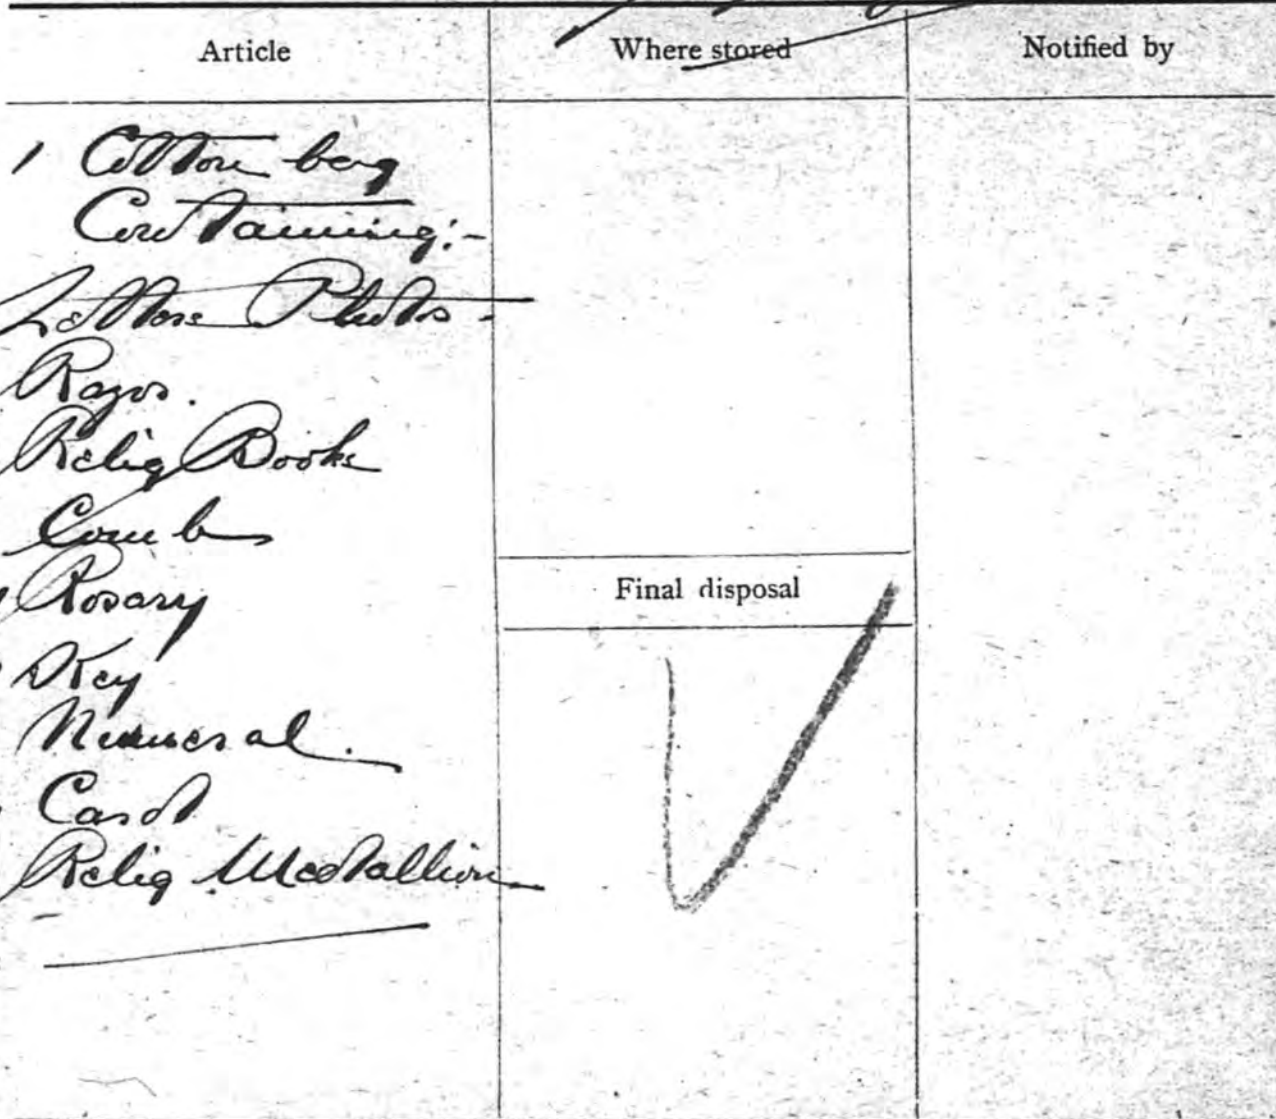 Article
Where stored
Notified by
1 Cotton bag
Containing:-
Letters Photos -
Razor.
Relig Books
Comb
Rosary
Key
Numeral.
Card
Relig Medallion
Final disposal